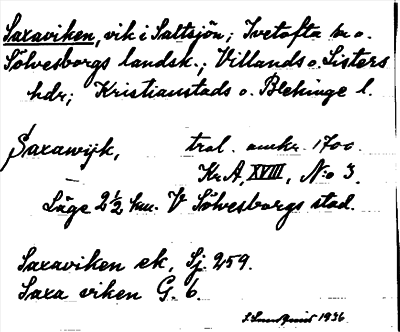 Saxaviken, vik i Saltsjön; Ivetofta sn o.
Sölvesborgs landsk.; Villands o. Listers
hdr; Kristianstads o. Blekinge l.
Saxawijk, trol. omkr. 1700.
Kr.A, XVIII, N:o 3.
Läge 2 1/2 km. V Sölvesborgs stad.
Saxaviken ek. Sj. 259.
Saxa viken G. 6.
1936